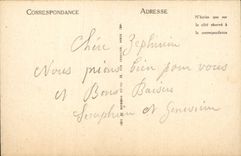 CORRESPONDANCE
ADRESSE
N'écrire que sur
le côté réservé à
la correspondance
Chère Zéphirin
Nous prions bien pour vous
et Bons Baisers
Seraphin et Geneviève